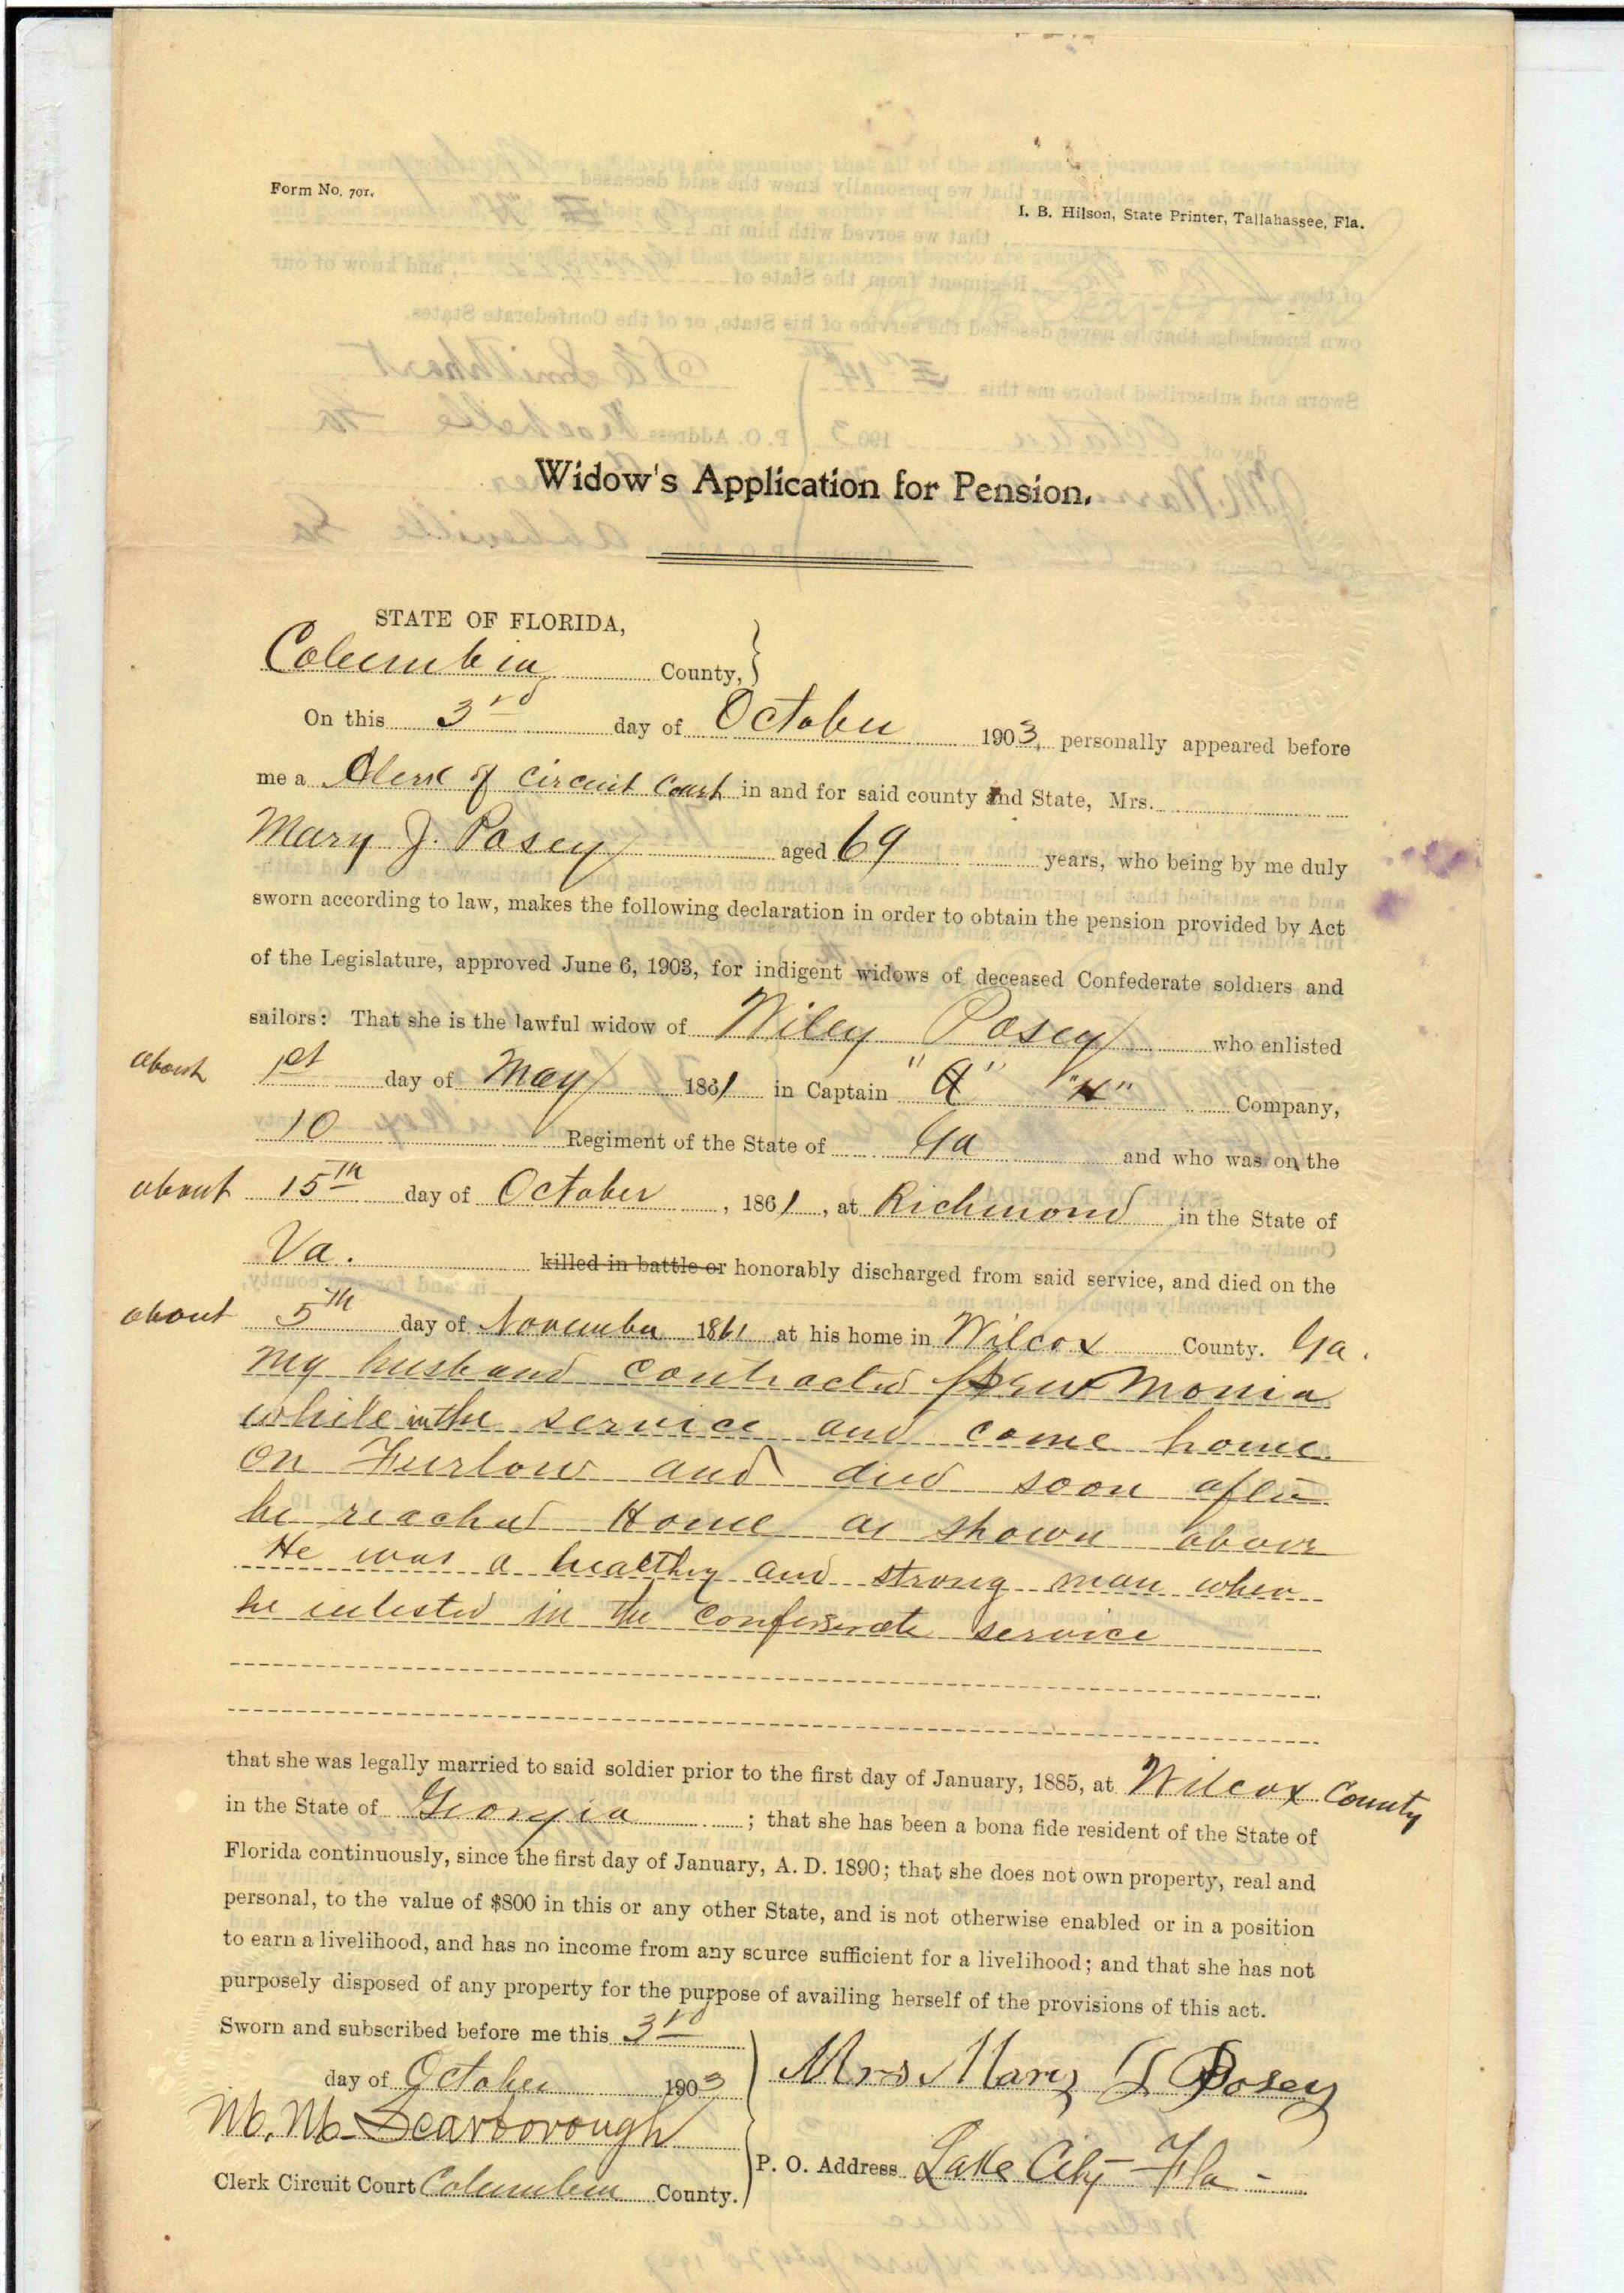 Form No. 701.
I. B. Hilson, State Printer, Tallahassee, Fla.
Widow's Application for Pension.
STATE OF FLORIDA,
Columbia County,
On this 3rd day of October 1903, personally appeared before
me a Clerk of Circuit Court in and for said county and State, Mrs.
Mary J. Posey aged 69 years, who being by me duly
sworn according to law, makes the following declaration in order to obtain the pension provided by Act
of the Legislature, approved June 6, 1903, for indigent widows of deceased Confederate soldiers and
sailors: That she is the lawful widow of Wiley Posey who enlisted
about 1st day of May 1861 in Captain "H" Company,
10 Regiment of the State of Ga and who was on the
about 15th day of October, 1861, at Richmond in the State of
Va. killed in battle or honorably discharged from said service, and died on the
about 5th day of November 1861 at his home in Wilcox County. Ga.
my husband contracted monia
while in the service and come home
on Furlow and died soon after
he reached Home as shown above
He was a healthy and strong man when
he enlisted in the Confederate service
that she was legally married to said soldier prior to the first day of January, 1885, at Wilcox County
in the State of Georgia; that she has been a bona fide resident of the State of
Florida continuously, since the first day of January, A. D. 1890; that she does not own property, real and
personal, to the value of $800 in this or any other State, and is not otherwise enabled or in a position
to earn a livelihood, and has no income from any source sufficient for a livelihood; and that she has not
purposely disposed of any property for the purpose of availing herself of the provisions of this act.
Sworn and subscribed before me this 3rd
day of October 1903
Mrs Mary J Posey
M. M. Scarborough
P. O. Address Lake City Fla
Clerk Circuit Court Columbia County.